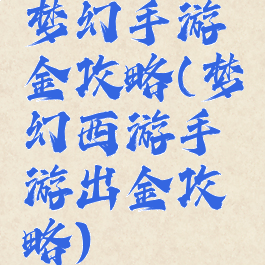 梦幻手游
金攻略(梦
幻西游手
游出金攻
略)